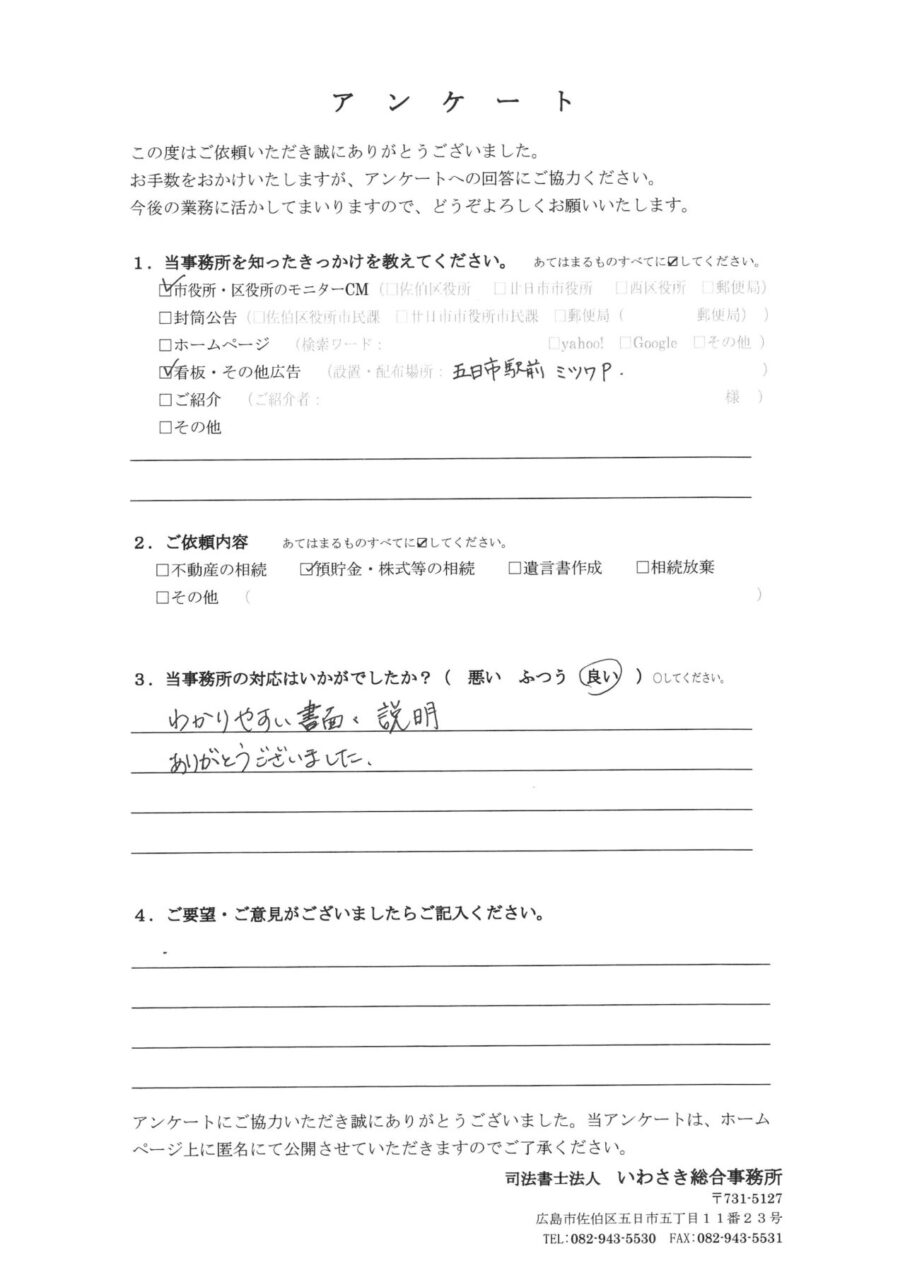 アンケート
この度はご依頼いただき誠にありがとうございました。
お手数をおかけいたしますが、アンケートへの回答にご協力ください。
今後の業務に活かしてまいりますので、どうぞよろしくお願いいたします。
1．当事務所を知ったきっかけを教えてください。 あてはまるものすべてに☑してください。
☑市役所・区役所のモニターCM（□佐伯区役所 □廿日市市役所 □西区役所 □郵便局）
□封筒公告（□佐伯区役所市民課 □廿日市市役所市民課 □郵便局（ 郵便局））
□ホームページ （検索ワード： □yahoo! □Google □その他 ）
☑看板・その他広告 （設置・配布場所：五日市駅前 ミツワP. ）
□ご紹介 （ご紹介者： 様 ）
□その他
2．ご依頼内容 あてはまるものすべてに☑してください。
□不動産の相続 ☑預貯金・株式等の相続 □遺言書作成 □相続放棄
□その他 （ ）
3．当事務所の対応はいかがでしたか？（ 悪い ふつう 良い ）○してください。
わかりやすい書面と説明
ありがとうございました.
4．ご要望・ご意見がございましたらご記入ください。
アンケートにご協力いただき誠にありがとうございました。当アンケートは、ホーム
ページ上に匿名にて公開させていただきますのでご了承ください。
司法書士法人 いわさき総合事務所
〒731-5127
広島市佐伯区五日市五丁目１１番２３号
TEL：082-943-5530 FAX：082-943-5531